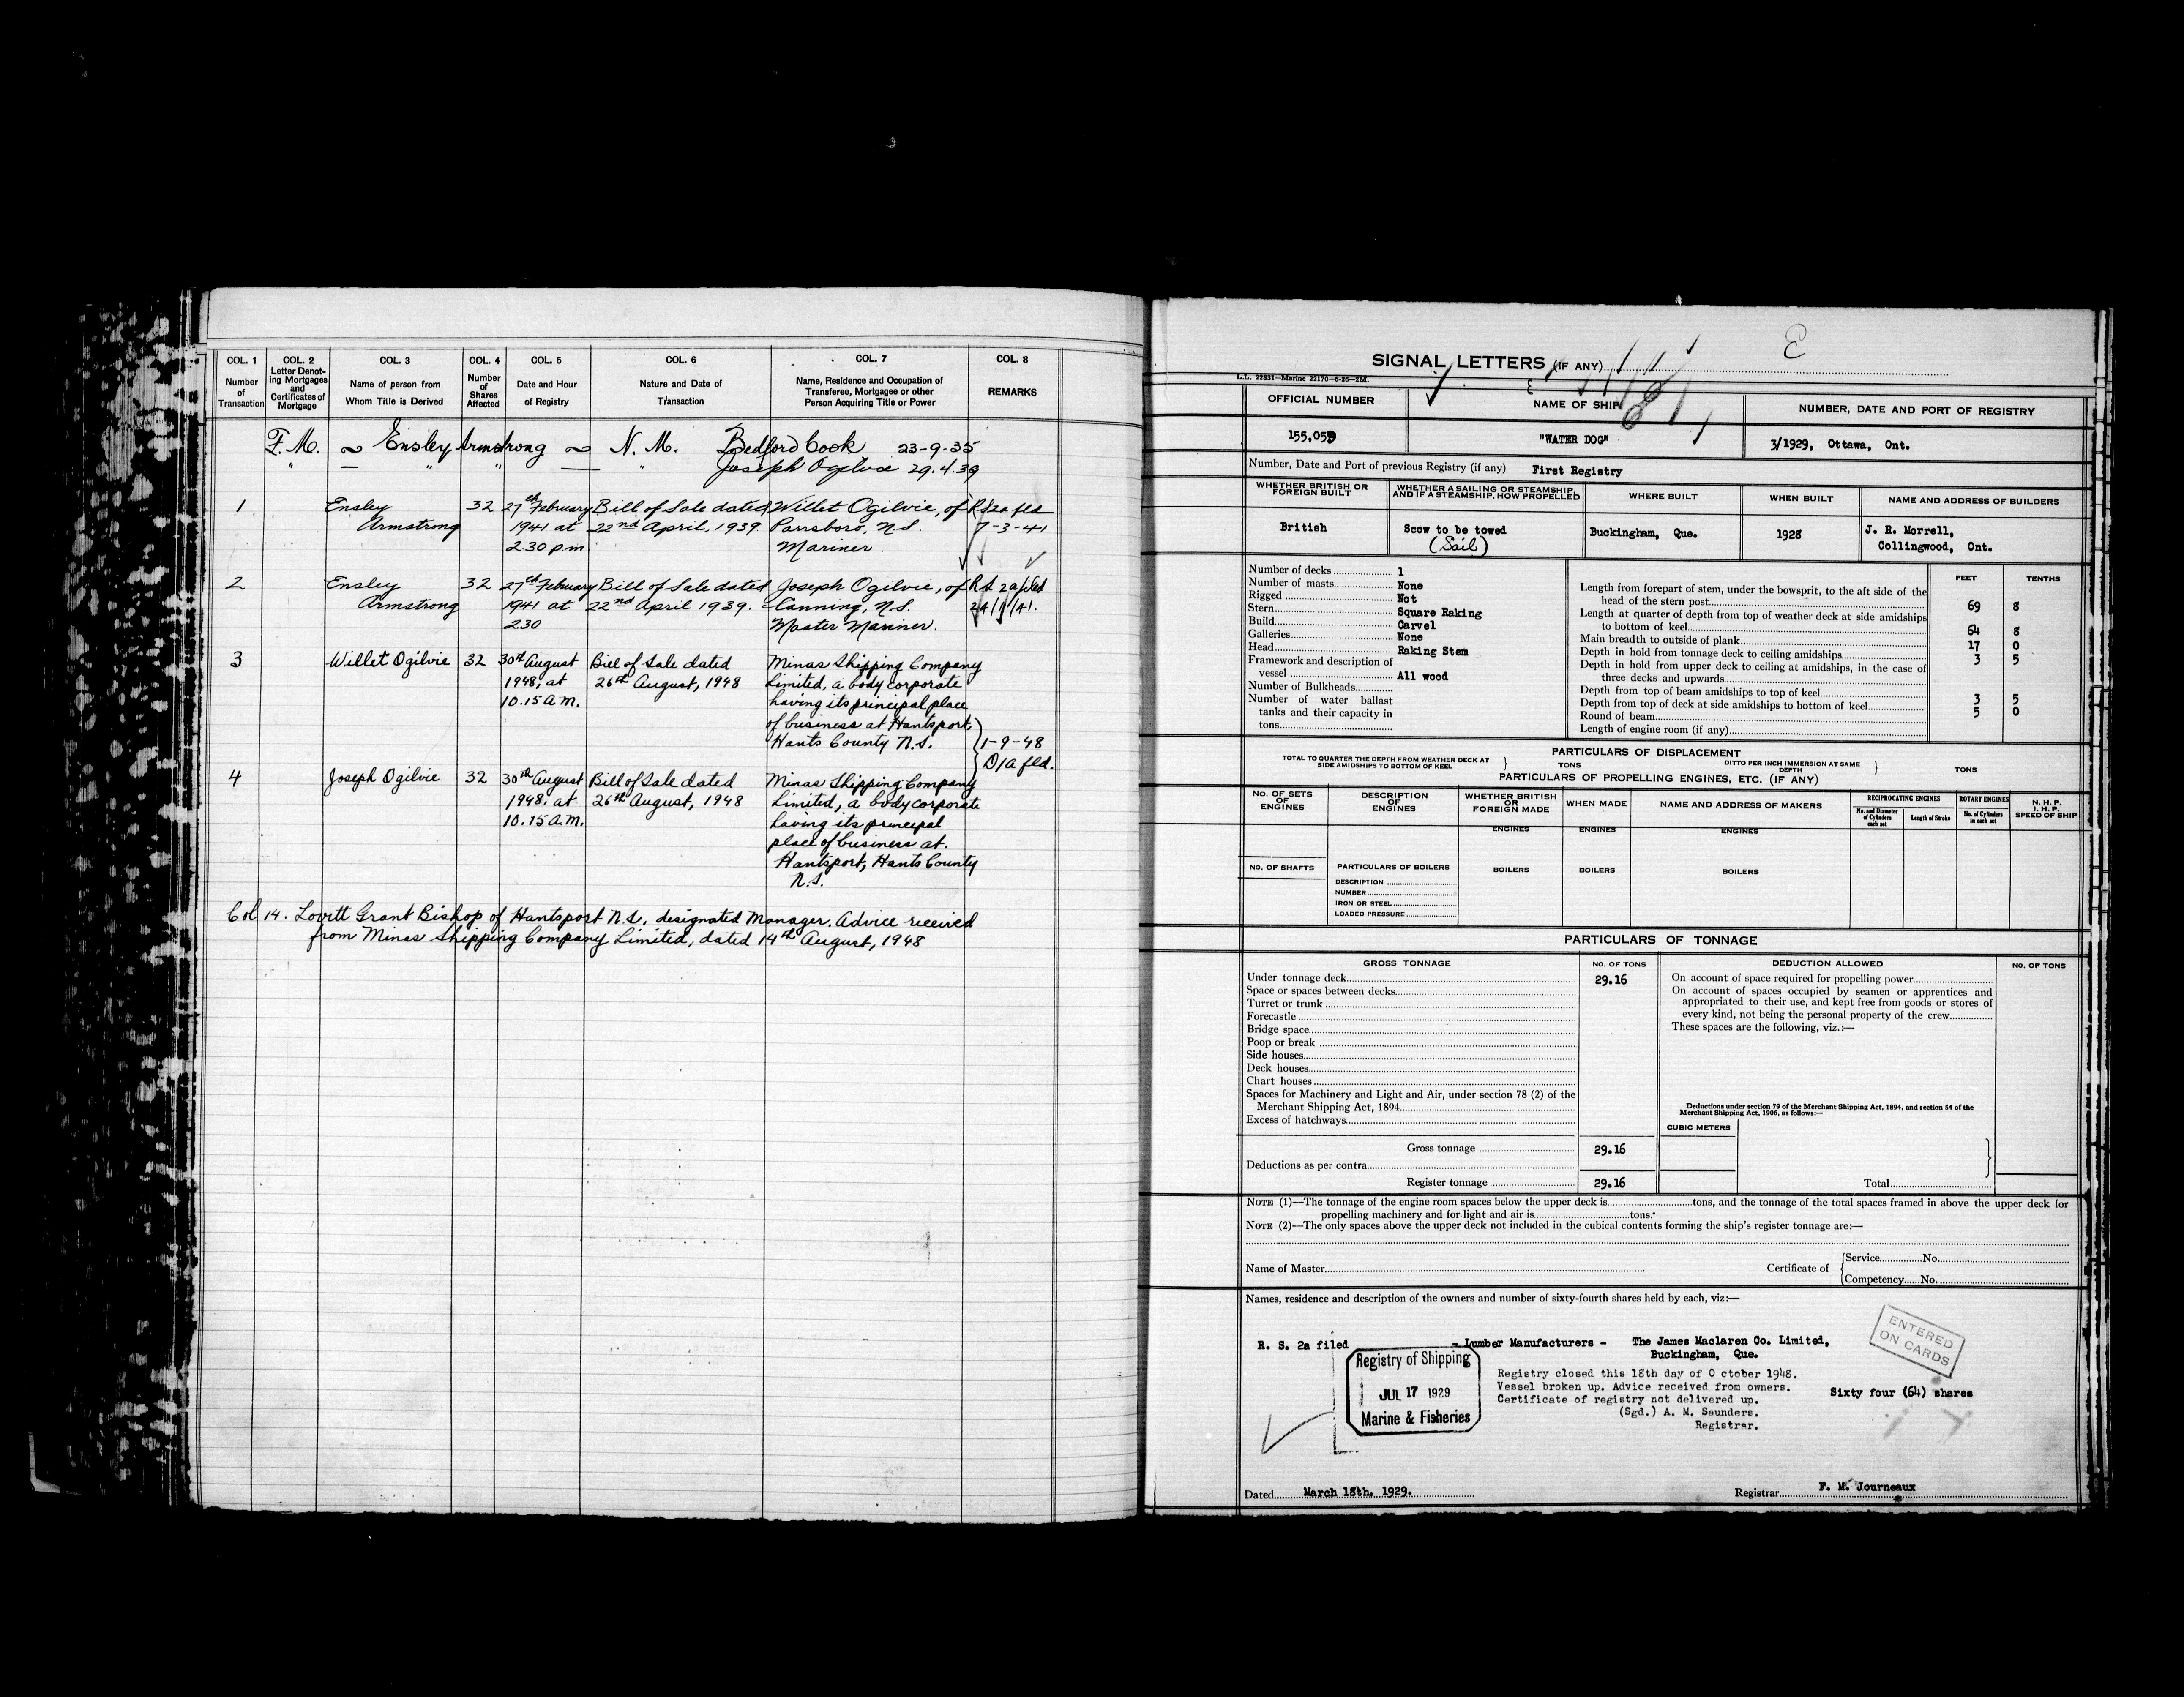 COL. 1 COL. 2 COL. 3 COL. 4 COL. 5 COL. 6 COL. 7 COL. 8
Number of Transaction
Letter Denoting Mortgages and Certificates of Mortgage
Name of person from Whom Title is Derived
Number of Shares Affected
Date and Hour of Registry
Nature and Date of Transaction
Name, Residence and Occupation of Transferee, Mortgagee or other Person Acquiring Title or Power
REMARKS
F.M. ~ Ensley Armstrong ~ N.M. Bedford Cook 23-9-35
" — " " — " Joseph Ogilvie 29.4.39
1 Ensley 32 27th February Bill of Sale dated Willet Ogilvie, of R.S.2a fld
Armstrong 1941 at 22nd April, 1939. Parrsboro, N.S. 7-3-41
2.30 p.m. Mariner.
2 Ensley 32 27th February Bill of Sale dated Joseph Ogilvie, of R.S. 2a filed
Armstrong 1941 at 22nd April 1939. Canning, N.S.
2.30 Master Mariner.
3 Willet Ogilvie 32 30th August Bill of Sale dated Minas Shipping Company
1948, at 26th August, 1948 Limited, a body corporate
10.15 A.M. having its principal place
of business at Hantsport,
Hants County N.S. 1-9-48
D/a fld.
4 Joseph Ogilvie 32 30th August Bill of Sale dated Minas Shipping Company
1948, at 26th August, 1948 Limited, a body corporate
10.15 A.M. having its principal
place of business at
Hantsport, Hants County
N.S.
Col 14. Lovitt Grant Bishop of Hantsport N.S. designated Manager. Advice received
from Minas Shipping Company Limited, dated 14th August, 1948
SIGNAL LETTERS (IF ANY)
E
L.L. 22831—Marine 22170—6-26—2M.
OFFICIAL NUMBER NAME OF SHIP NUMBER, DATE AND PORT OF REGISTRY
155,059 "WATER DOG" 3/1929, Ottawa, Ont.
Number, Date and Port of previous Registry (if any) First Registry
WHETHER BRITISH OR FOREIGN BUILT
WHETHER A SAILING OR STEAMSHIP, AND IF A STEAMSHIP, HOW PROPELLED
WHERE BUILT WHEN BUILT NAME AND ADDRESS OF BUILDERS
British Scow to be towed Buckingham, Que. 1928 J. R. Morrell,
(Sail) Collingwood, Ont.
Number of decks 1
Number of masts None
Rigged Not
Stern Square Raking
Build Carvel
Galleries None
Head Raking Stem
Framework and description of
vessel All wood
Number of Bulkheads
Number of water ballast
tanks and their capacity in
tons
FEET TENTHS
Length from forepart of stem, under the bowsprit, to the aft side of the
head of the stern post 69 8
Length at quarter of depth from top of weather deck at side amidships
to bottom of keel 64 8
Main breadth to outside of plank 17 0
Depth in hold from tonnage deck to ceiling amidships 3 5
Depth in hold from upper deck to ceiling at amidships, in the case of
three decks and upwards
Depth from top of beam amidships to top of keel 3 5
Depth from top of deck at side amidships to bottom of keel 5 0
Round of beam
Length of engine room (if any)
PARTICULARS OF DISPLACEMENT
TOTAL TO QUARTER THE DEPTH FROM WEATHER DECK AT SIDE AMIDSHIPS TO BOTTOM OF KEEL } TONS DITTO PER INCH IMMERSION AT SAME DEPTH } TONS
PARTICULARS OF PROPELLING ENGINES, ETC. (IF ANY)
NO. OF SETS OF ENGINES
DESCRIPTION OF ENGINES
WHETHER BRITISH OR FOREIGN MADE
WHEN MADE
NAME AND ADDRESS OF MAKERS
RECIPROCATING ENGINES
No. and Diameter of Cylinders each set
Length of Stroke
ROTARY ENGINES
No. of Cylinders in each set
N. H. P.
I. H. P.
SPEED OF SHIP
ENGINES ENGINES ENGINES
NO. OF SHAFTS PARTICULARS OF BOILERS BOILERS BOILERS BOILERS
DESCRIPTION
NUMBER
IRON OR STEEL
LOADED PRESSURE
PARTICULARS OF TONNAGE
GROSS TONNAGE NO. OF TONS DEDUCTION ALLOWED NO. OF TONS
Under tonnage deck 29.16
Space or spaces between decks
Turret or trunk
Forecastle
Bridge space
Poop or break
Side houses
Deck houses
Chart houses
Spaces for Machinery and Light and Air, under section 78 (2) of the
Merchant Shipping Act, 1894
Excess of hatchways
Gross tonnage 29.16
Deductions as per contra
Register tonnage 29.16
On account of space required for propelling power
On account of spaces occupied by seamen or apprentices and
appropriated to their use, and kept free from goods or stores of
every kind, not being the personal property of the crew
These spaces are the following, viz.:—
Deductions under section 79 of the Merchant Shipping Act, 1894, and section 54 of the
Merchant Shipping Act, 1906, as follows:—
CUBIC METERS
Total
NOTE (1)—The tonnage of the engine room spaces below the upper deck is tons, and the tonnage of the total spaces framed in above the upper deck for
propelling machinery and for light and air is tons.
NOTE (2)—The only spaces above the upper deck not included in the cubical contents forming the ship's register tonnage are:—
Name of Master Certificate of { Service No.
Competency No.
Names, residence and description of the owners and number of sixty-fourth shares held by each, viz:—
R. S. 2a filed - Lumber Manufacturers - The James Maclaren Co. Limited,
Buckingham, Que.
ENTERED
ON CARDS
Registry of Shipping
JUL 17 1929
Marine & Fisheries
Registry closed this 18th day of October 1948.
Vessel broken up. Advice received from owners.
Certificate of registry not delivered up.
(Sgd.) A. M. Saunders.
Registrar.
Sixty four (64) shares
Dated March 18th. 1929.
Registrar F. M. Journeaux